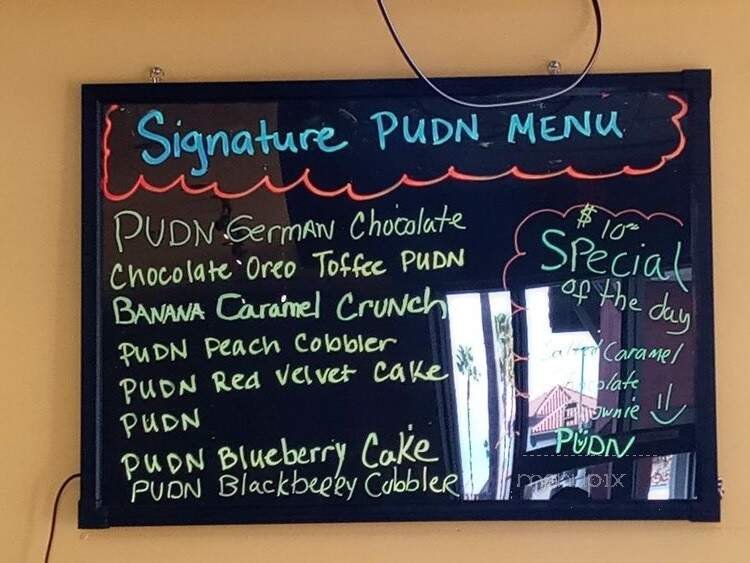 Signature PUDN MENU
PUDN German Chocolate
Chocolate Oreo Toffee PUDN
BANANA Caramel Crunch
PUDN Peach Cobbler
PUDN Red Velvet Cake
PUDN
PUDN Blueberry Cake
PUDN Blackberry Cobbler
$10
Special
of the day
Caramel
PUDN